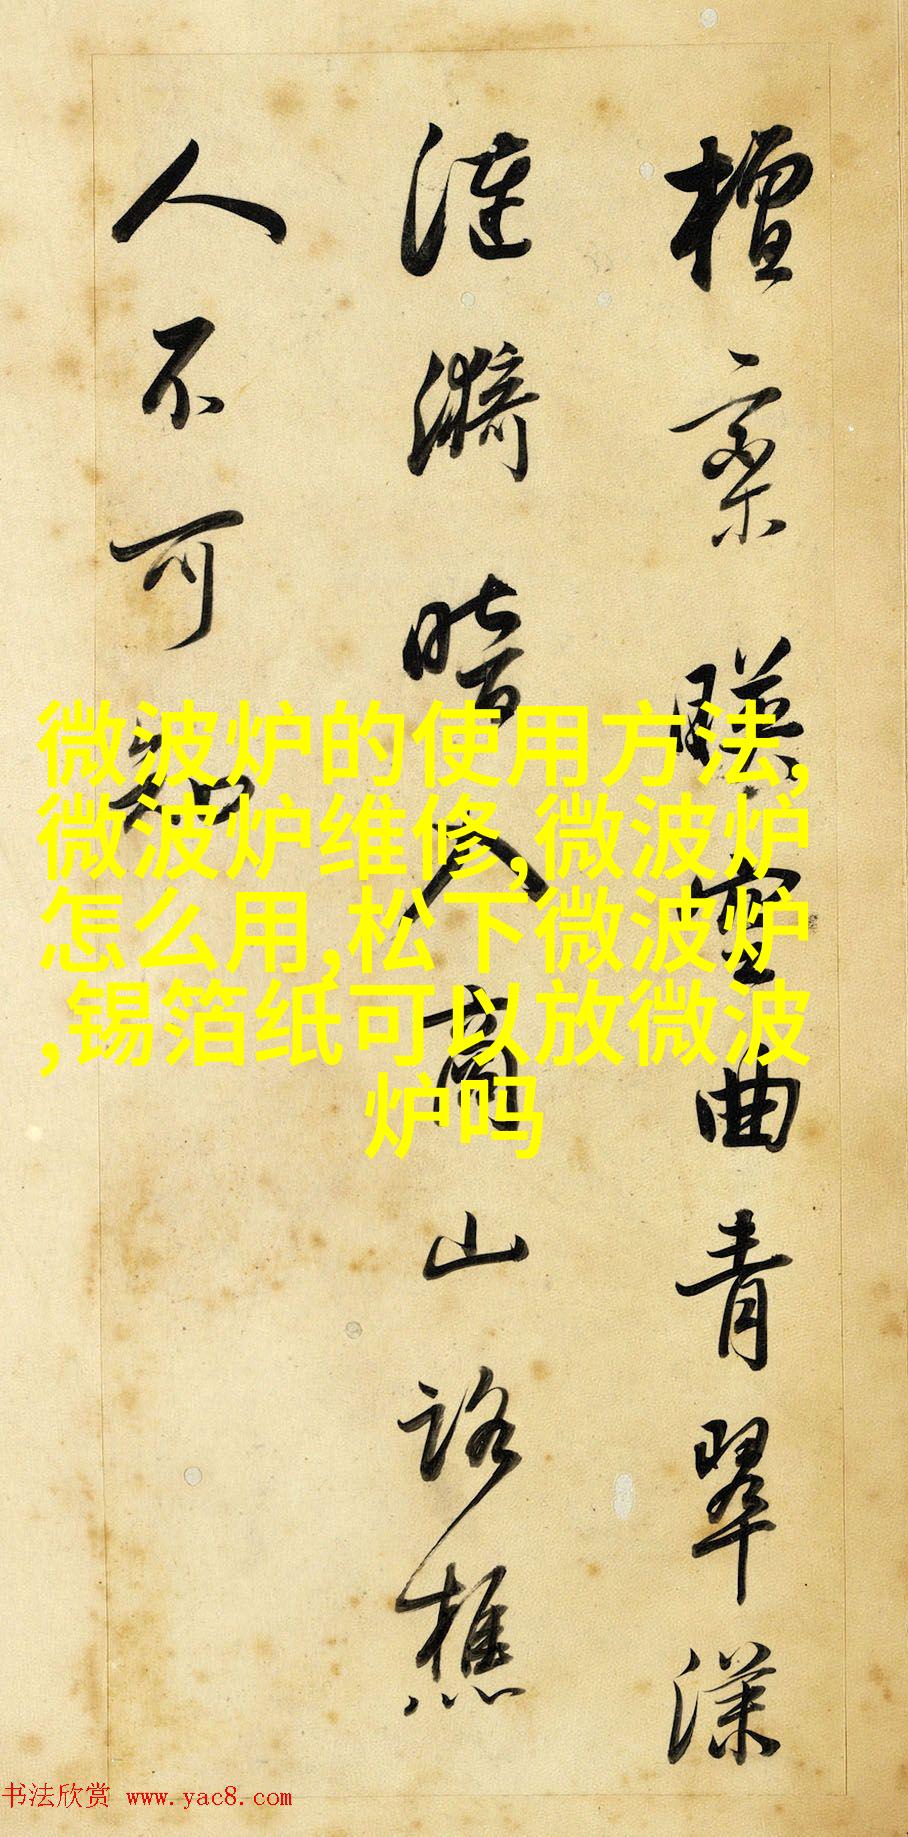 檀栾暎空曲青翠漾
漣漪暗入商山路樵
人不可知
微波炉的使用方法,
微波炉维修,微波炉
怎么用,松下微波炉
,锡箔纸可以放微波
炉吗
书法欣赏 www.yac8.com